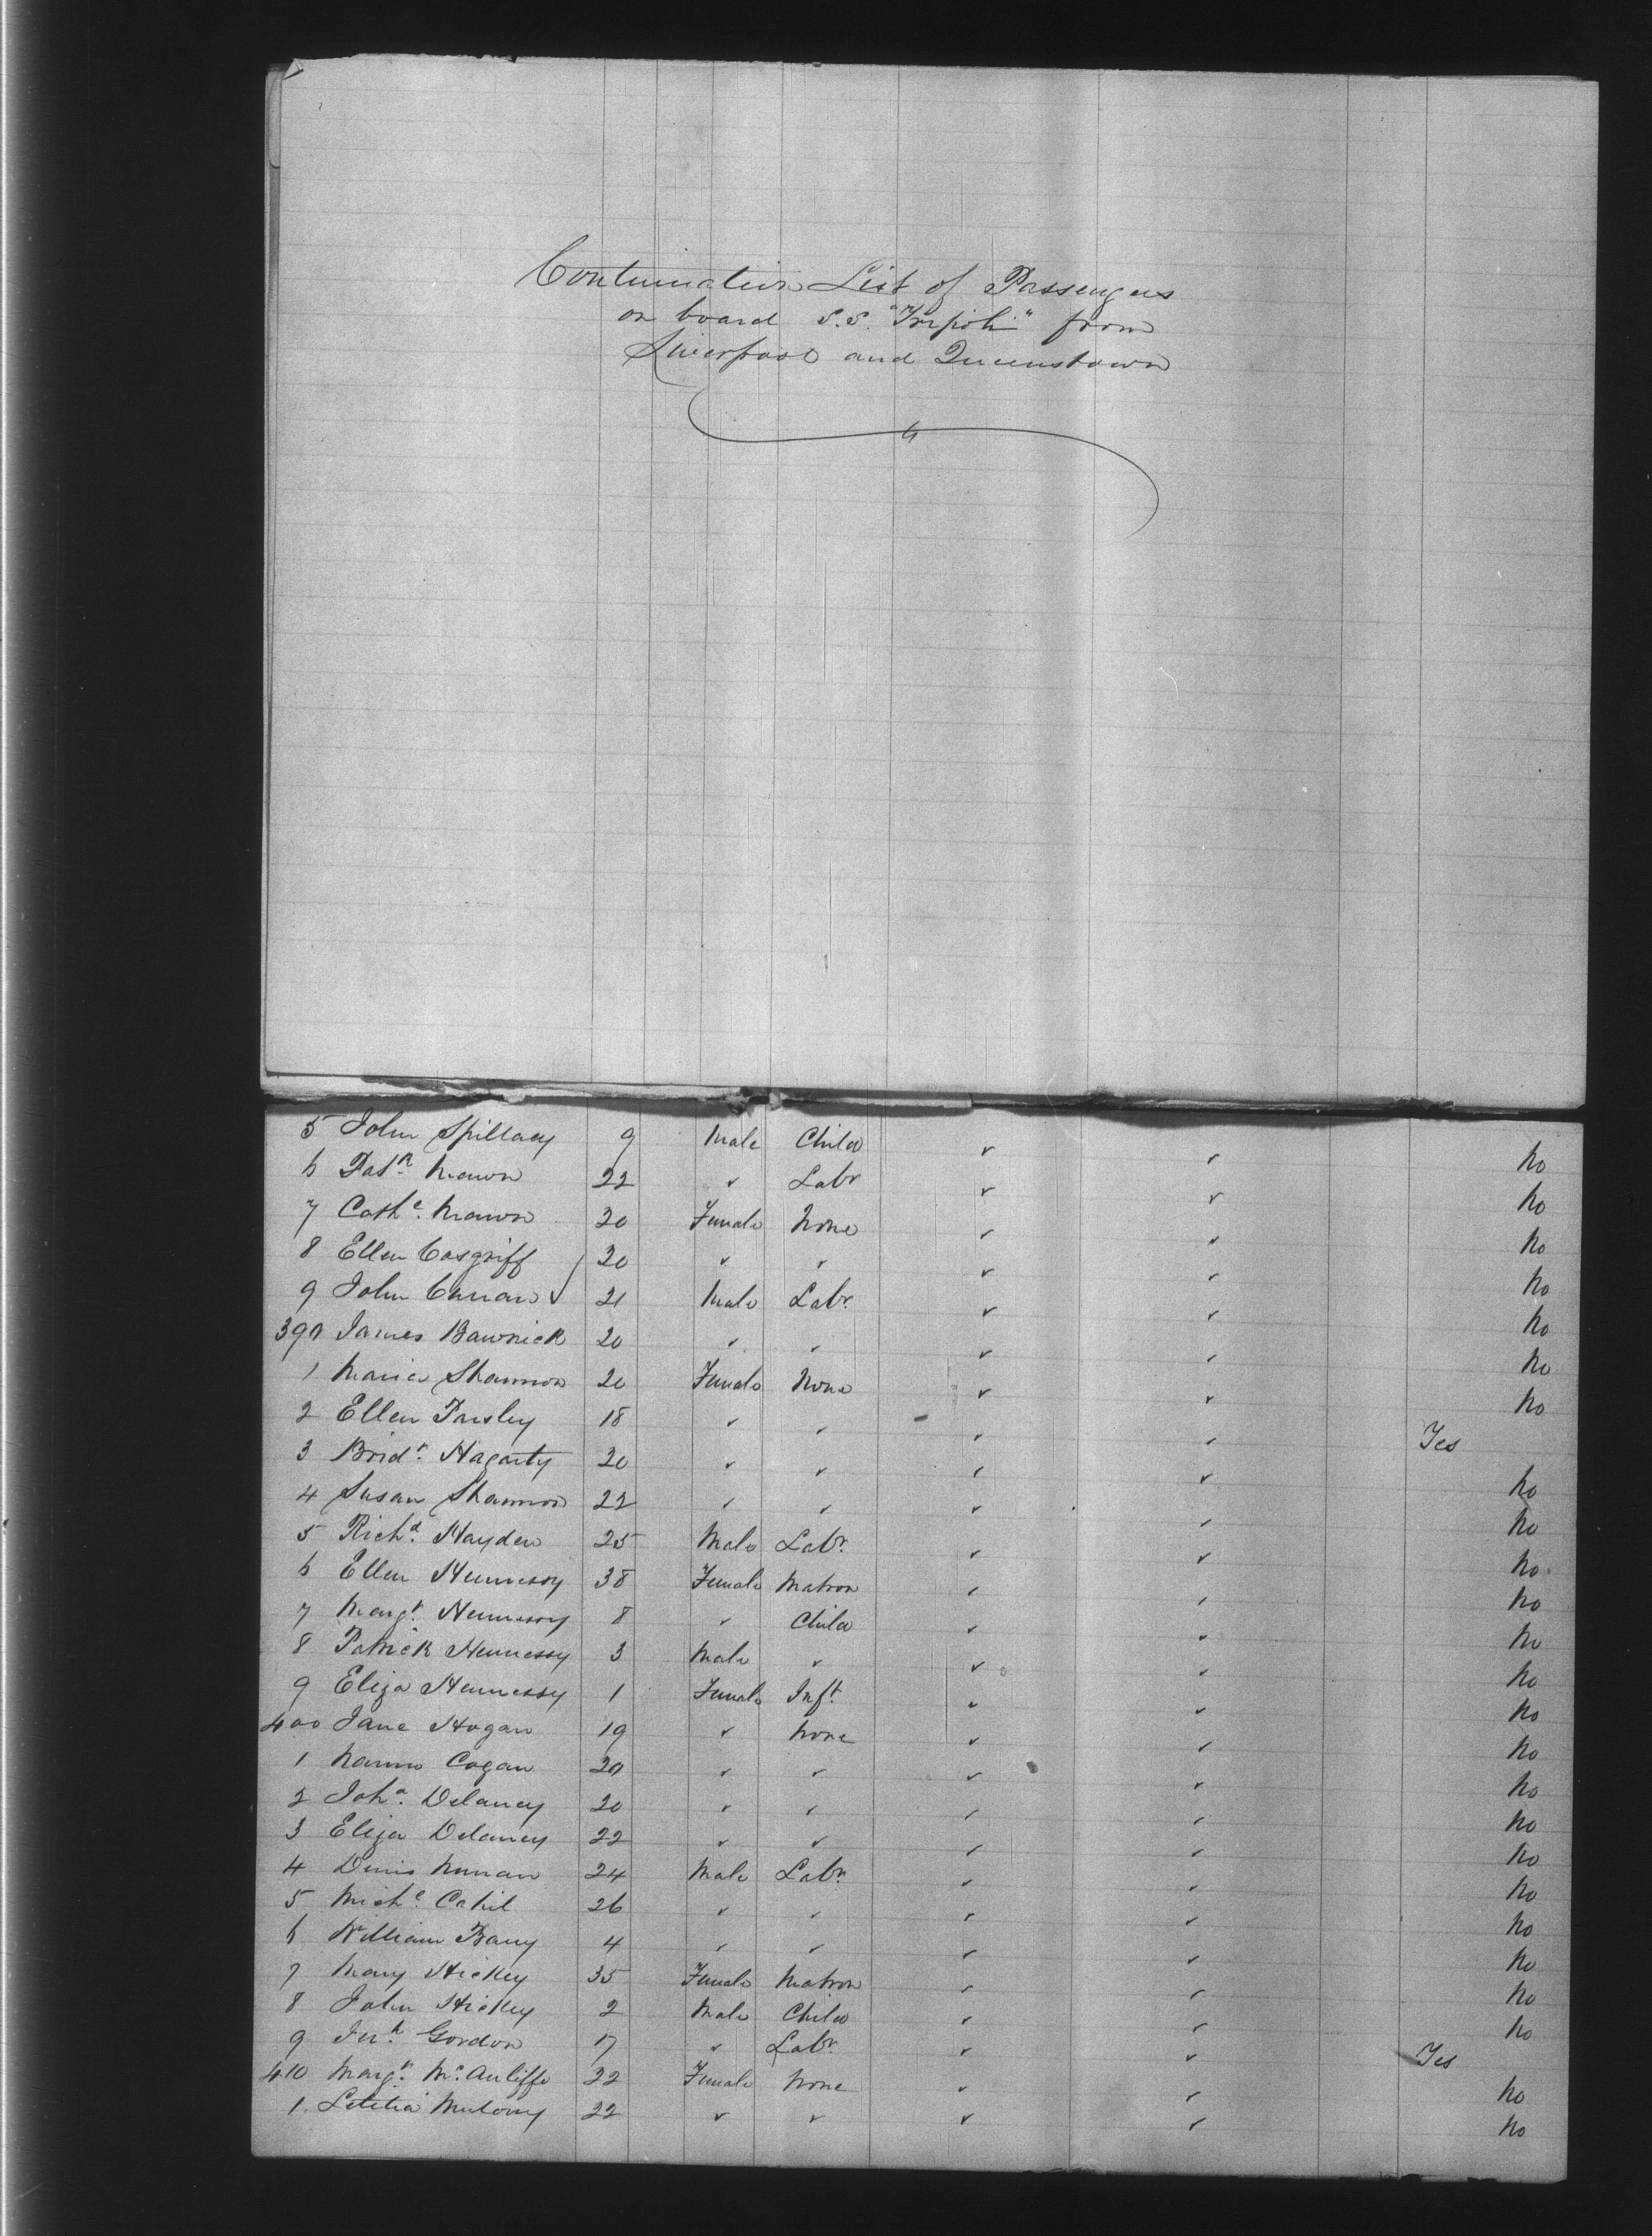 Continuation List of Passengers
on board S.S. "Tripoli" from
Liverpool and Queenstown
5 John Spillacy 9 Male Child ✓ ✓ No
6 Patk 22 ✓ Labr ✓ ✓ No
7 Cathe 20 Female None ✓ ✓ No
8 Ellen Cosgriff 20 ✓ ✓ ✓ ✓ No
9 John Curran 21 Male Labr ✓ ✓ No
390 James Bawnick 20 ✓ ✓ ✓ ✓ No
1 Maria Shannon 20 Female None ✓ ✓ No
2 Ellen Parsley 18 ✓ ✓ ✓ ✓ Yes
3 Bridt Hagarty 20 ✓ ✓ ✓ ✓ No
4 Susan Shannon 22 ✓ ✓ ✓ ✓ No
5 Richd Hayden 25 Male Labr ✓ ✓ No
6 Ellen Hennessy 38 Female Matron ✓ ✓ No
7 Margt Hennessy 8 ✓ Child ✓ ✓ No
8 Patrick Hennessy 3 Male ✓ ✓ ✓ No
9 Eliza Hennessy 1 Female Inft ✓ ✓ No
400 Jane Hogan 19 ✓ None ✓ ✓ No
1 Cogan 20 ✓ ✓ ✓ ✓ No
2 Joha Delaney 20 ✓ ✓ ✓ ✓ No
3 Eliza Delaney 22 ✓ ✓ ✓ ✓ No
4 Denis Nunan 24 Male Labr ✓ ✓ No
5 Miche Cahil 26 ✓ ✓ ✓ ✓ No
6 William Barry 4 ✓ ✓ ✓ ✓ No
7 Mary Hickey 35 Female Matron ✓ ✓ No
8 John Hickey 2 Male Child ✓ ✓ No
9 Gordon 17 ✓ Labr ✓ ✓ Yes
410 Margt McAuliffe 22 Female None ✓ ✓ No
1 Letitia 22 ✓ ✓ ✓ ✓ No